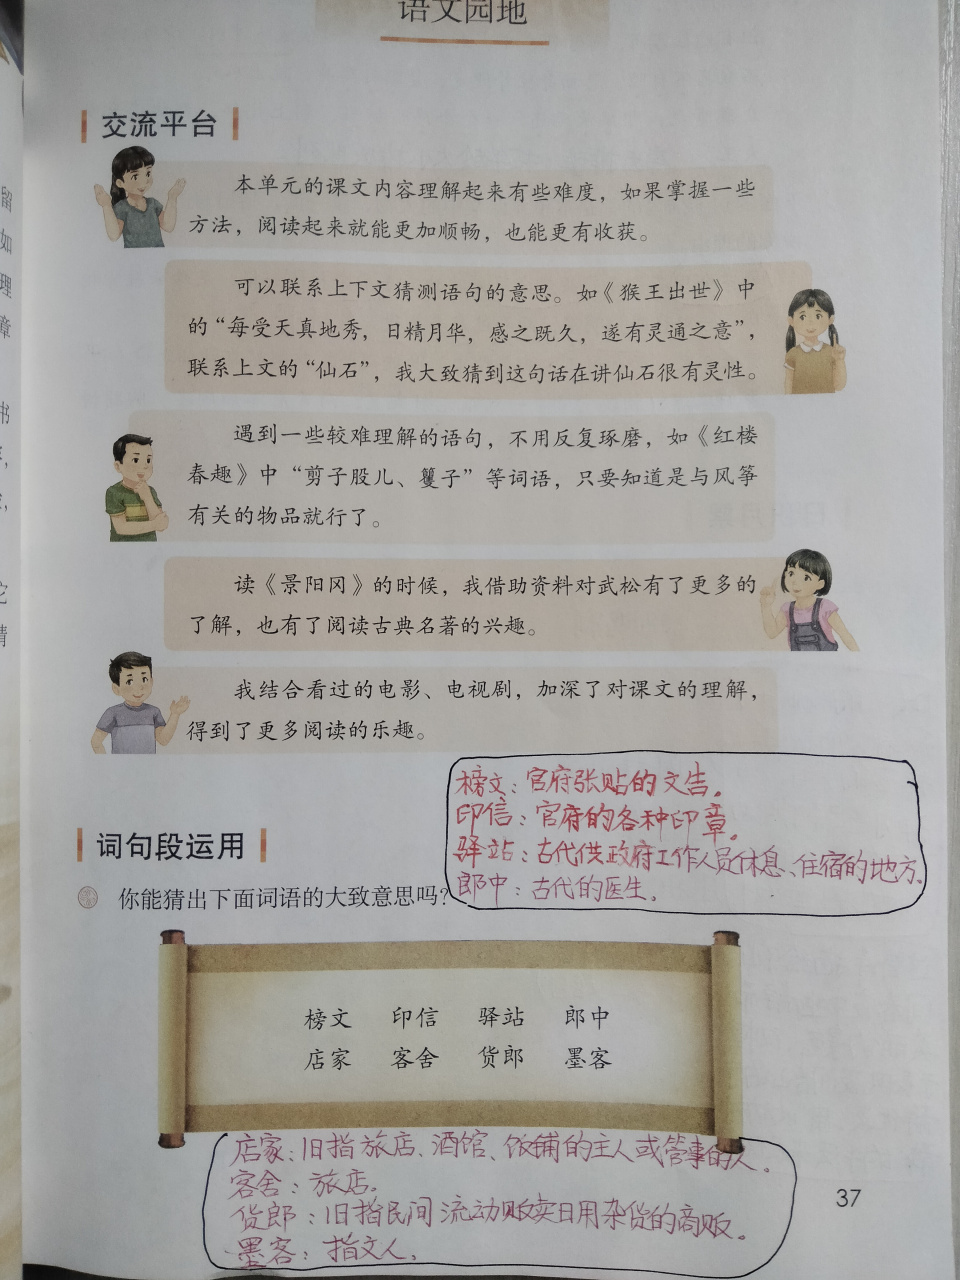 语文园地
交流平台
本单元的课文内容理解起来有些难度，如果掌握一些
方法，阅读起来就能更加顺畅，也能更有收获。
可以联系上下文猜测语句的意思。如《猴王出世》中
的“每受天真地秀，日精月华，感之既久，遂有灵通之意”，
联系上文的“仙石”，我大致猜到这句话在讲仙石很有灵性。
遇到一些较难理解的语句，不用反复琢磨，如《红楼
春趣》中“剪子股儿、籰子”等词语，只要知道是与风筝
有关的物品就行了。
读《景阳冈》的时候，我借助资料对武松有了更多的
了解，也有了阅读古典名著的兴趣。
我结合看过的电影、电视剧，加深了对课文的理解，
得到了更多阅读的乐趣。
榜文：官府张贴的文告。
印信：官府的各种印章。
驿站：古代供政府工作人员休息、住宿的地方。
郎中：古代的医生。
词句段运用
你能猜出下面词语的大致意思吗？
榜文 印信 驿站 郎中
店家 客舍 货郎 墨客
店家：旧指旅店、酒馆、饭铺的主人或管事的人。
客舍：旅店。
货郎：旧指民间流动贩卖日用杂货的商贩。
墨客：指文人。
37
留
如
理
章
书
它
情